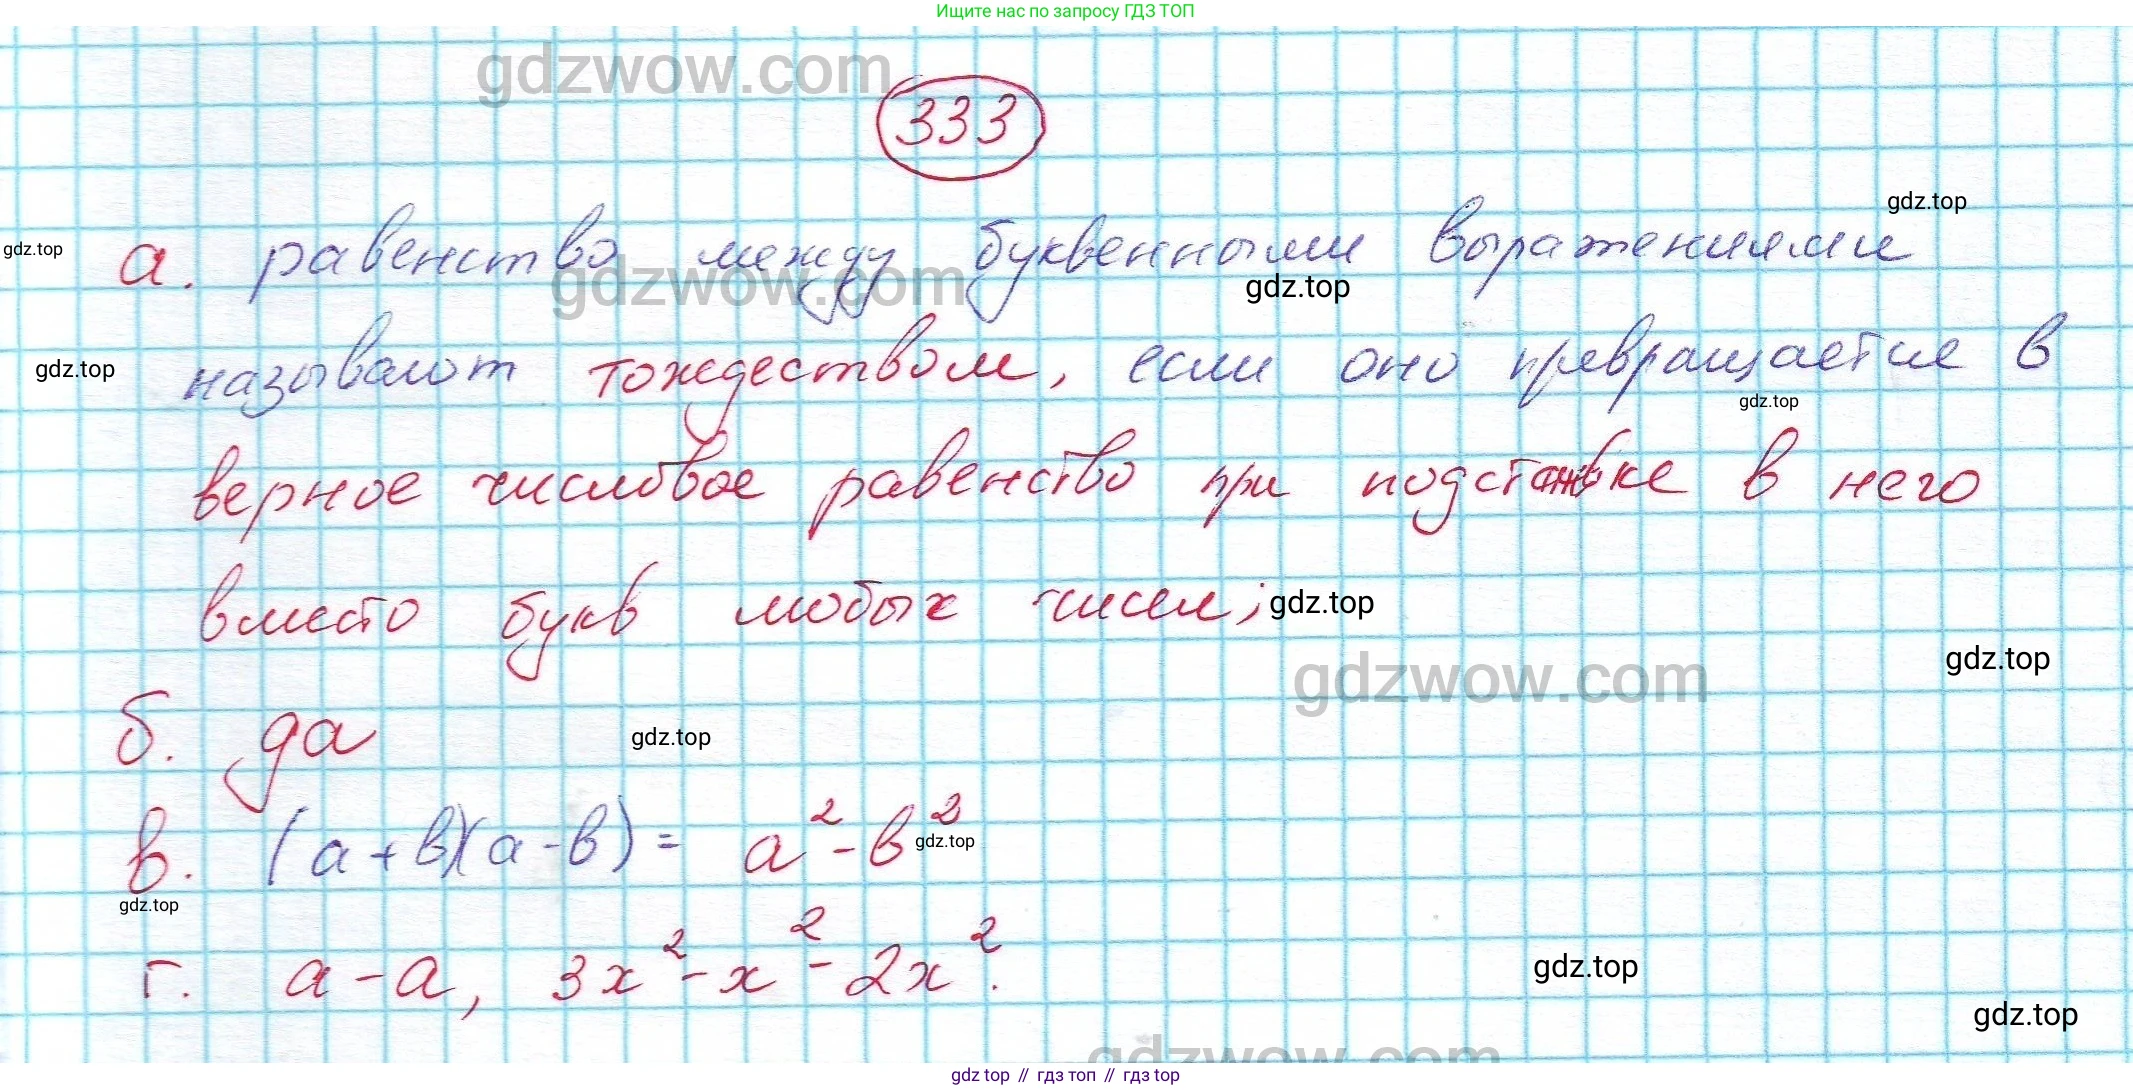 Ищите нас по запросу ГДЗ ТОП
gdzwow.com
333
gdz.top
gdz.top
а. равенство между буквенными выражениями
gdzwow.com
gdz.top
называют тождеством, если оно превращается в
gdz.top
gdz.top
верное числовое равенство при подстановке в него
вместо букв любых чисел;
gdz.top
gdzwow.com
gdz.top
б. да
gdz.top
в. (a+b)(a-b) = a²-b²
gdz.top
gdz.top
г. a-a, 3x²-x²-2x².
gdz.top
gdz.top
gdzwow.com
gdz top // гдз топ // гдз top